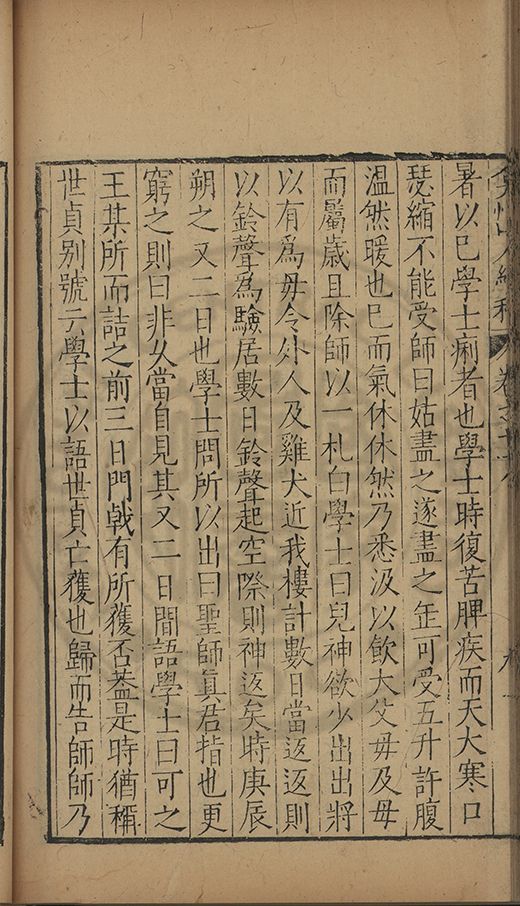 暑以已學士痢者也學士時復苦脾疾而天大寒口
瑟縮不能受師曰姑盡之遂盡之缶可受五升許腹
溫然暖也已而氣休休然乃悉汲以飲大父母及母
而屬歲且除師以一札白學士曰兒神欲少出出將
以有爲毋令外人及雞犬近我樓計數日當返返則
以鈴聲爲驗居數日鈴聲起空際則神返矣時庚辰
朔之又二日也學士問所以出曰聖師眞君指也更
窮之則曰非久當自見其又二日間語學士曰可之
王某所而詰之前三日門戟有所獲否葢是時猶稱
世貞别號云學士以語世貞亡獲也歸而告師師乃